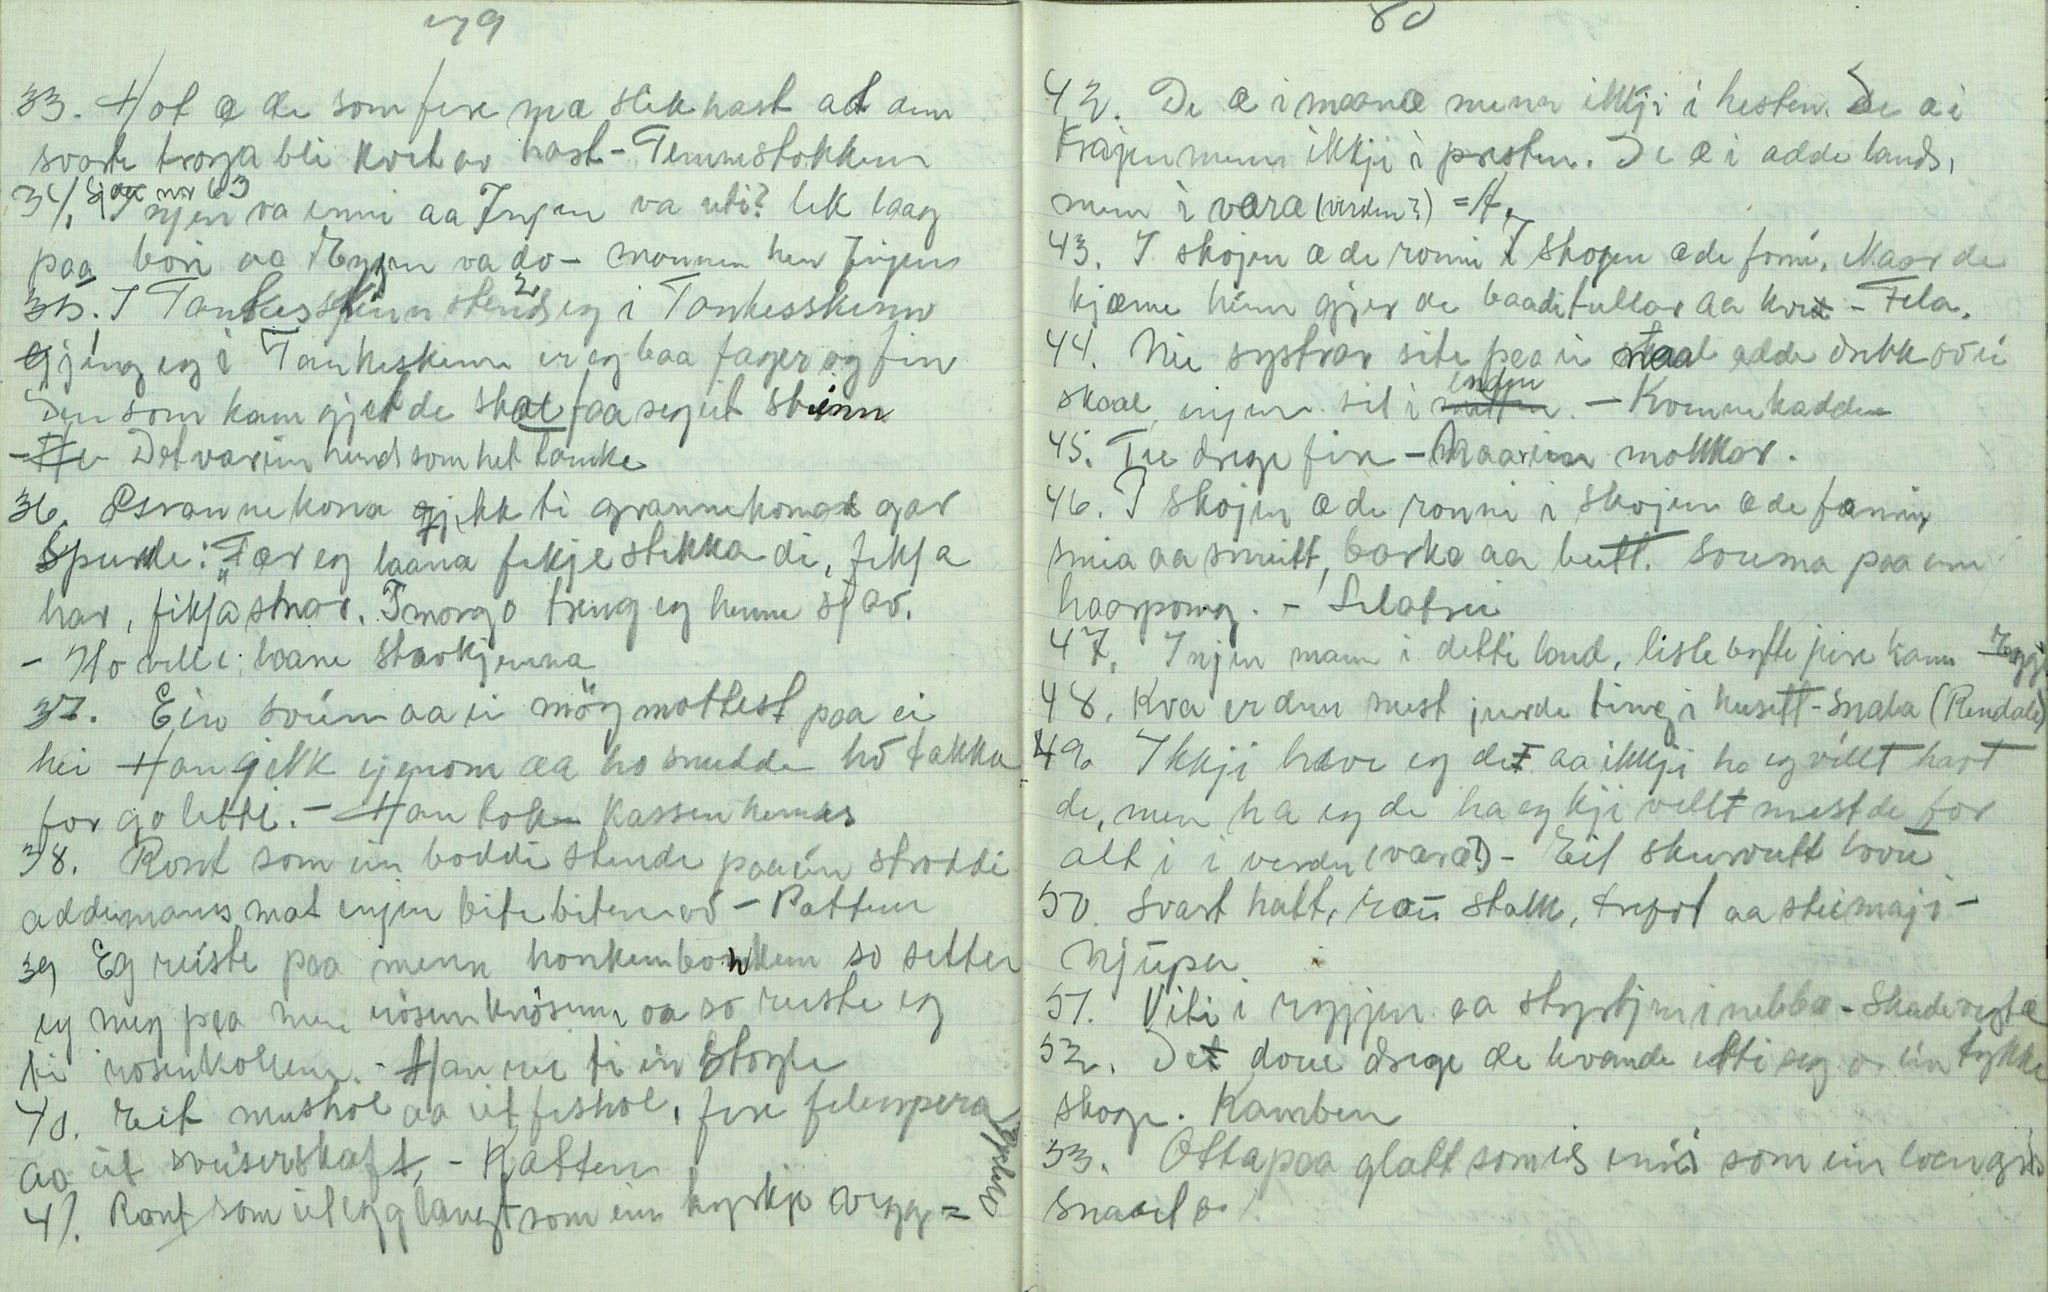 79
33. Hot æ de som fere mæ slik hast at den
svarte troga bli kvit av hast - Temmestokken
34. Sjaa nr 63 Injen va inni aa Injen va uti? lik laag
paa bori aa Injen va do - mannen hen Injen
35. I Tankesskinn stend eg i Tankesskinn
gjeng eg i Tankeskinn er eg baa fager og fin
Den som kann gjet de skal faa seg eit stinn
- Det var ein hund som het Tanke
36. Grannekona gjikk ti grannekonas gar
Spurde: "Fær eg laana fikje stikka di, fikja
har, fikja snar. I morgo treng eg henne sjav.
- Ho ville laane
37. Ein svein aa ei möy mottest paa ei
hei Han gjekk igjenom aa ho snudde ho takka
for go letti. - Han tok kassen hennes
38. Ront som ein boddi stende paa ein stroddi
addemanns mat injen bite biten av - Patten
39 Eg reiste paa menn honkenbonken so setter
eg meg paa men rösenknösen, aa so reiste eg
ti rosenkollen. - Han rei ti ein Stoyle
40. Eit mushol aa eit fishol, fire filespera
aa eit sveiserskaft, - Katten
41. Ront som eit egg langt som ein kyrkje vegg =
80
42. De æ i maane menn ikkji i hesten. De æ i
Krajen menn ikkji i presten. De æ i adde lands,
menn i væra (verden?) = A.
43. I skojen æ de ronni I skogen æ de fonni. Naar de
kjæme heim gjer de baadi tullar aa kvit - Fela.
44. Nie systrar site paa ei staal adde drikk ov ei
skaal, injen sit i endyn - Konnekadden
45. Tie drege fire - Maarein molkkar.
46. I skojen æ de ronni i skojen æ de fonni,
smia aa smeitt, barka aa beitt. souma paa ein
haarpong. - Selatrei
47. Injen mann i detti land, lisle bytte jire kann - Egg
48. Kva er den mest jurde ting i husett - Snalla (Rendale)
49. Ikkji have eg det aa ikkji ha eg villt havt
de, men ha eg de ha eg kji villt mest de for
alt i i verdn (væra?) - Eit skurvutt hovu
50. Svart hatt, rau stakk, trypt aa steimaji -
Njuper
51. Viti i ryggjen aa stygbjen i nebba - Skadevegtæ
52. Det doue drege de levande etti seg or ein tykke
skoge. Kamben
53. Otta paa glatt som is inni som ein